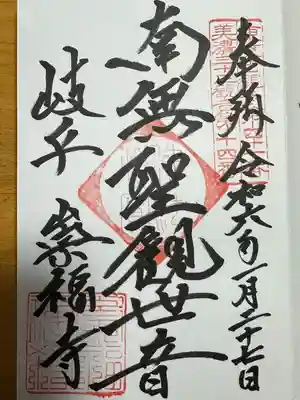 奉拝 令和六年一月二十七日
南無聖観世音
岐阜 崇福寺